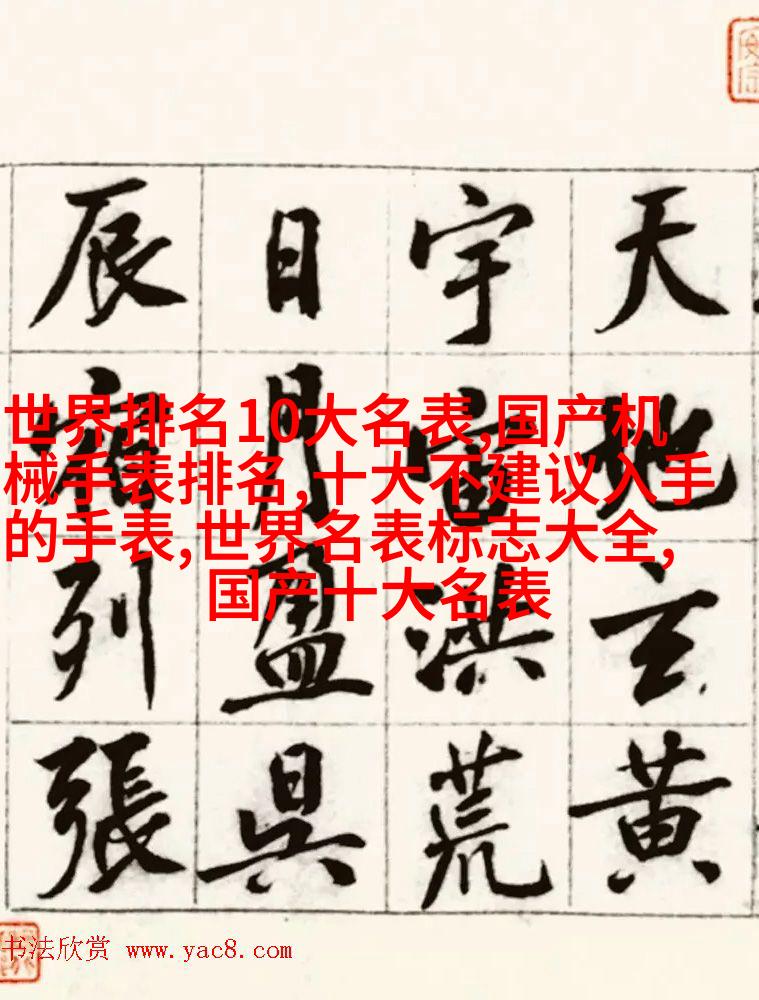 天地玄黄
宇宙洪荒
日月盈昃
辰宿列張
世界排名10大名表,国产机
械手表排名,十大不建议入手
的手表,世界名表标志大全,
国产十大名表
书法欣赏 www.yac8.com